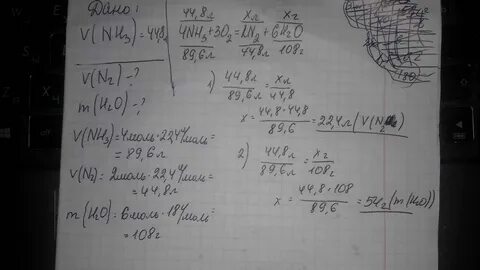 Дано:
V(NH₃)=44,8
V(N₂)-?
m(H₂O)-?
V(NH₃)=4моль·22,4л/моль=
=89,6л
V(N₂)=2моль·22,4л/моль=
=44,8л
m(H₂O)=6моль·18г/моль=
=108г
44,8л xл xг
4NH₃+3O₂=2N₂+6H₂O
89,6л 44,8л 108г
1) 44,8л/89,6л=xл/44,8
x=44,8·44,8/89,6=22,4л(V(N₂))
2) 44,8л/89,6л=xг/108г
x=44,8·108/89,6=54г(m(H₂O))